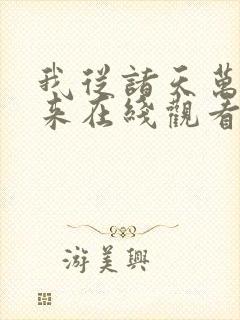 我從諸天萬
来在綫觀看
游美興